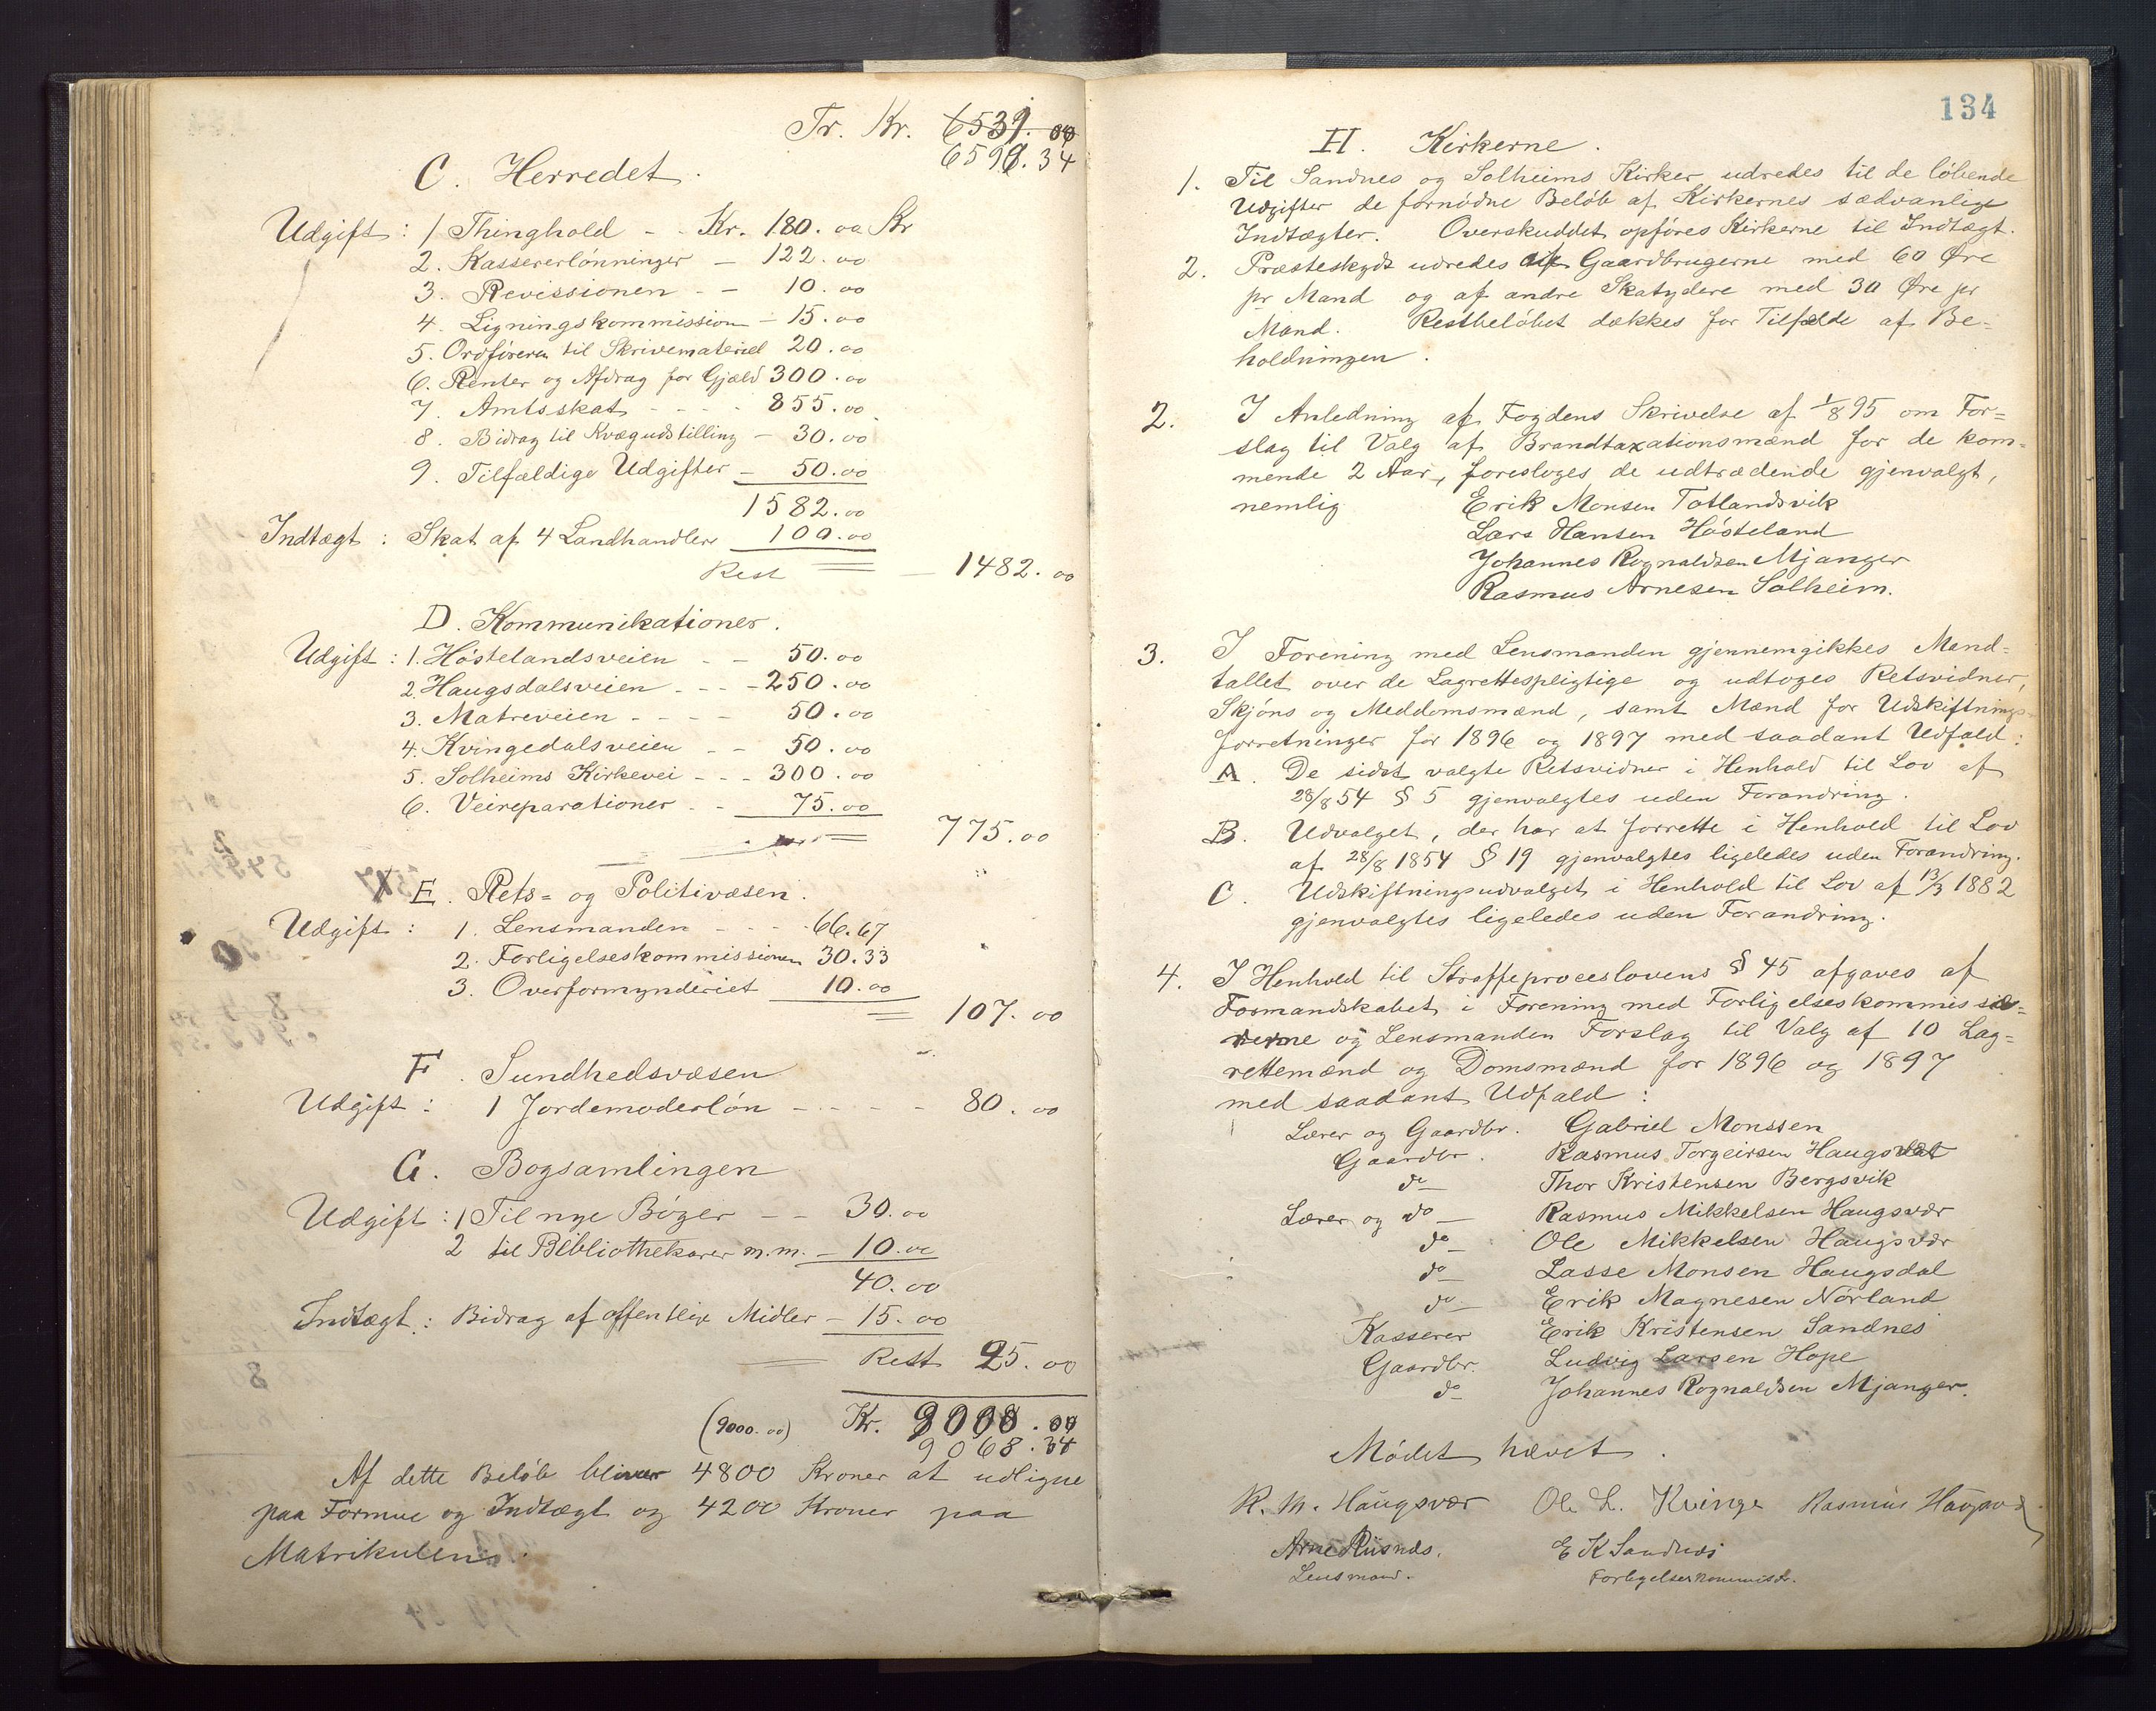 Tr. Kr. 6539. 00
6599. 34
C. Herredet.
Udgift: 1 Thinghold - - Kr. 180. 00 Kr
2. Kassererlønninger - 122. 00
3. Revissionen - - 10. 00
4. Ligningskommission - 15. 00
5. Ordføreren til Skrivemateriel 20. 00
6. Renter og Afdrag for Gjæld 300. 00
7. Amtsskat - - - - 855. 00
8. Bidrag til Kvægudstilling - 30. 00
9. Tilfældige Udgifter - 50. 00
1582. 00
Indtægt: Skat af 4 Landhandlere 100. 00
Rest - 1482. 00
D. Kommunikationer.
Udgift: 1. Høstelandsveien - - 50. 00
2. Haugsdalsveien - - - 250. 00
3. Matreveien - - - - 50. 00
4. Kvingedalsveien - - 50. 00
5. Solheims Kirkevei - - - 300. 00
6. Veireparationer - - 75. 00
775. 00
E. Rets= og Politivæsen.
Udgift: 1. Lensmanden - - - - 66. 67
2. Forligelseskommissionen 30. 33
3. Overformynderiet 10. 00
107. 00
F. Sundhedsvæsen
Udgift: 1 Jordemoderløn - - - - - 80. 00
G. Bogsamlingen
Udgift: 1 Til nye Bøger - - 30. 00
2 til Bibliothekarer m.m. - 10. 00
40. 00
Indtægt: Bidrag af offentlige Midler - 15. 00
Rest 25. 00
(9000. 00) Kr. 9008. 00
9068. 34
Af dette Beløb bliver 4800 Kroner at udligne
paa Formue og Indtægt og 4200 Kroner paa
Matrikulen.
134
H. Kirkerne.
1. Til Sandnes og Solheims Kirker udredes til de løbende
Udgifter de fornødne Beløb af Kirkernes sædvanlige
Indtægter. Overskuddet opføres Kirkerne til Indtægt.
2. Præsteskyds udredes af Gaardbrugerne med 60 Øre
pr Mand og af andre Skatydere med 30 Øre pr
Mand. Restbeløbet dækkes for Tilfælde af Be=
holdningen.
2. I Anledning af Fogdens Skrivelse af 1/8 95 om For=
slag til Valg af Brandtaxationsmænd for de kom=
mende 2 Aar, foresloges de udtrædende gjenvalgt,
nemlig Erik Monsen Totlandsvik
Lars Hansen Høsteland
Johannes Rognaldsen Mjanger
Rasmus Arnesen Solheim.
3. I Forening med Lensmanden gjennemgikkes Mand=
tallet over de Lagrettespligtige og udtoges Retsvidner,
Skjøns og Meddomsmænd, samt Mænd for Udskiftnings=
forretninger for 1896 og 1897 med saadant Udfald:
A. De sidst valgte Retsvidner i Henhold til Lov af
28/8 54 § 5 gjenvalgtes uden Forandring.
B. Udvalget, der har at forrette i Henhold til Lov
af 28/8 1854 § 19 gjenvalgtes ligeledes uden Forandring.
C. Udskiftningsudvalget i Henhold til Lov af 13/3 1882
gjenvalgtes ligeledes uden Forandring.
4. I Henhold til Straffeproceslovens § 45 afgaves af
Formandskabet i Forening med Forligelseskommissæ=
rerne og Lensmanden Forslag til Valg af 10 Lag=
rettemænd og Domsmænd for 1896 og 1897
med saadant Udfald:
Lærer og Gaardbr. Gabriel Monssen
Gaardbr. Rasmus Torgeirsen Haugsvær
do Thor Kristensen Bergsvik
Lærer og do Rasmus Mikkelsen Haugsvær
do Ole Mikkelsen Haugsvær
do Lasse Monsen Haugsdal
do Erik Magnesen Nørland
Kasserer Erik Kristensen Sandnes
Gaardbr. Ludvig Larsen Hope
do Johannes Rognaldsen Mjanger.
Mødet hævet.
R. M. Haugsvær Ole L. Kvinge Rasmus Haugsvær
Arne Risnes. E K Sandnes
Lensmand. Forligelseskommisær.